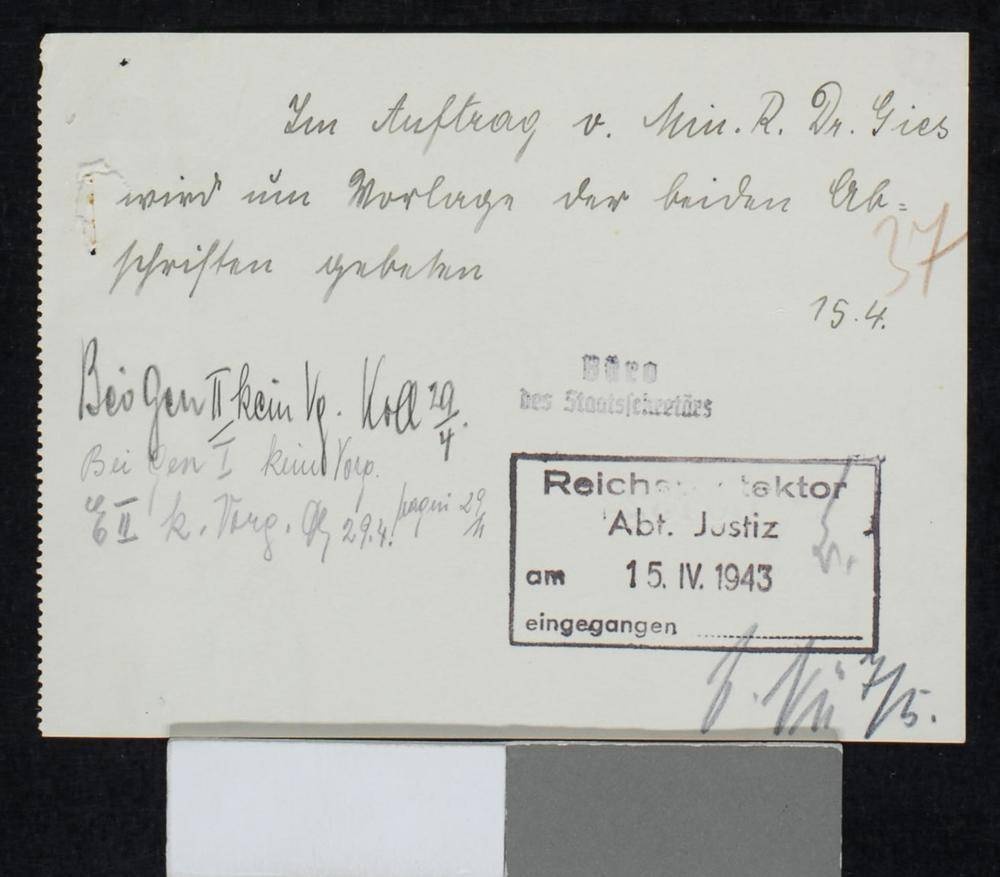 Im Auftrag v. Min. R. Dr. Gies
wird um Vorlage der beiden Ab-
schriften gebeten
37
15.4.
Büro
des Staatssekretärs
Bei Gen II kein Vg. Koll 29/4.
Bei Gen I kein Vorg.
E II k. Vorg. 29.4. 29
Abt. Justiz
am 15. IV. 1943
eingegangen
7/5.